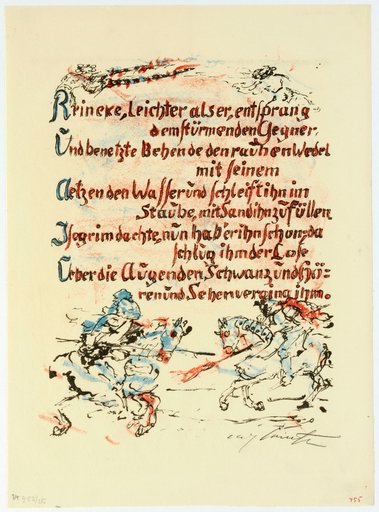 Reineke, leichter als er, entsprang
dem stürmenden Gegner
Und benetzte Behende den rauhen Wedel
mit seinem
Aetzenden Wasser und schleift ihn im
Staube, mit Sand ihn zu füllen
Isegrim dachte, nun hab er ihn schon, da
schlug ihm der Lose
Ueber die Augen den Schwanz und Hö-
ren und Sehen verging ihm.
755